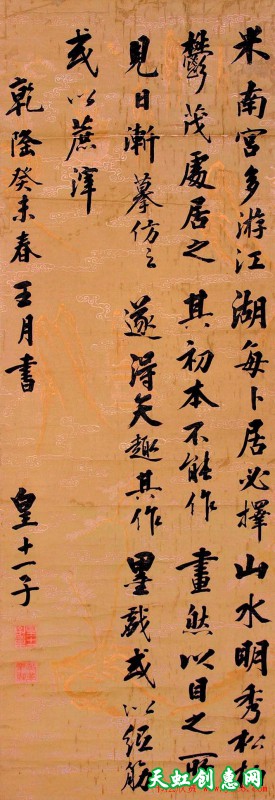 米南宮多游江湖每卜居必擇山水明秀松
鬱茂處居之其初本不能作畫然以目之所
見日漸摹仿之遂得天趣其作墨戲或以紙筋
或以蔗滓
乾隆癸未春王月書
皇十一子
天虹创意网